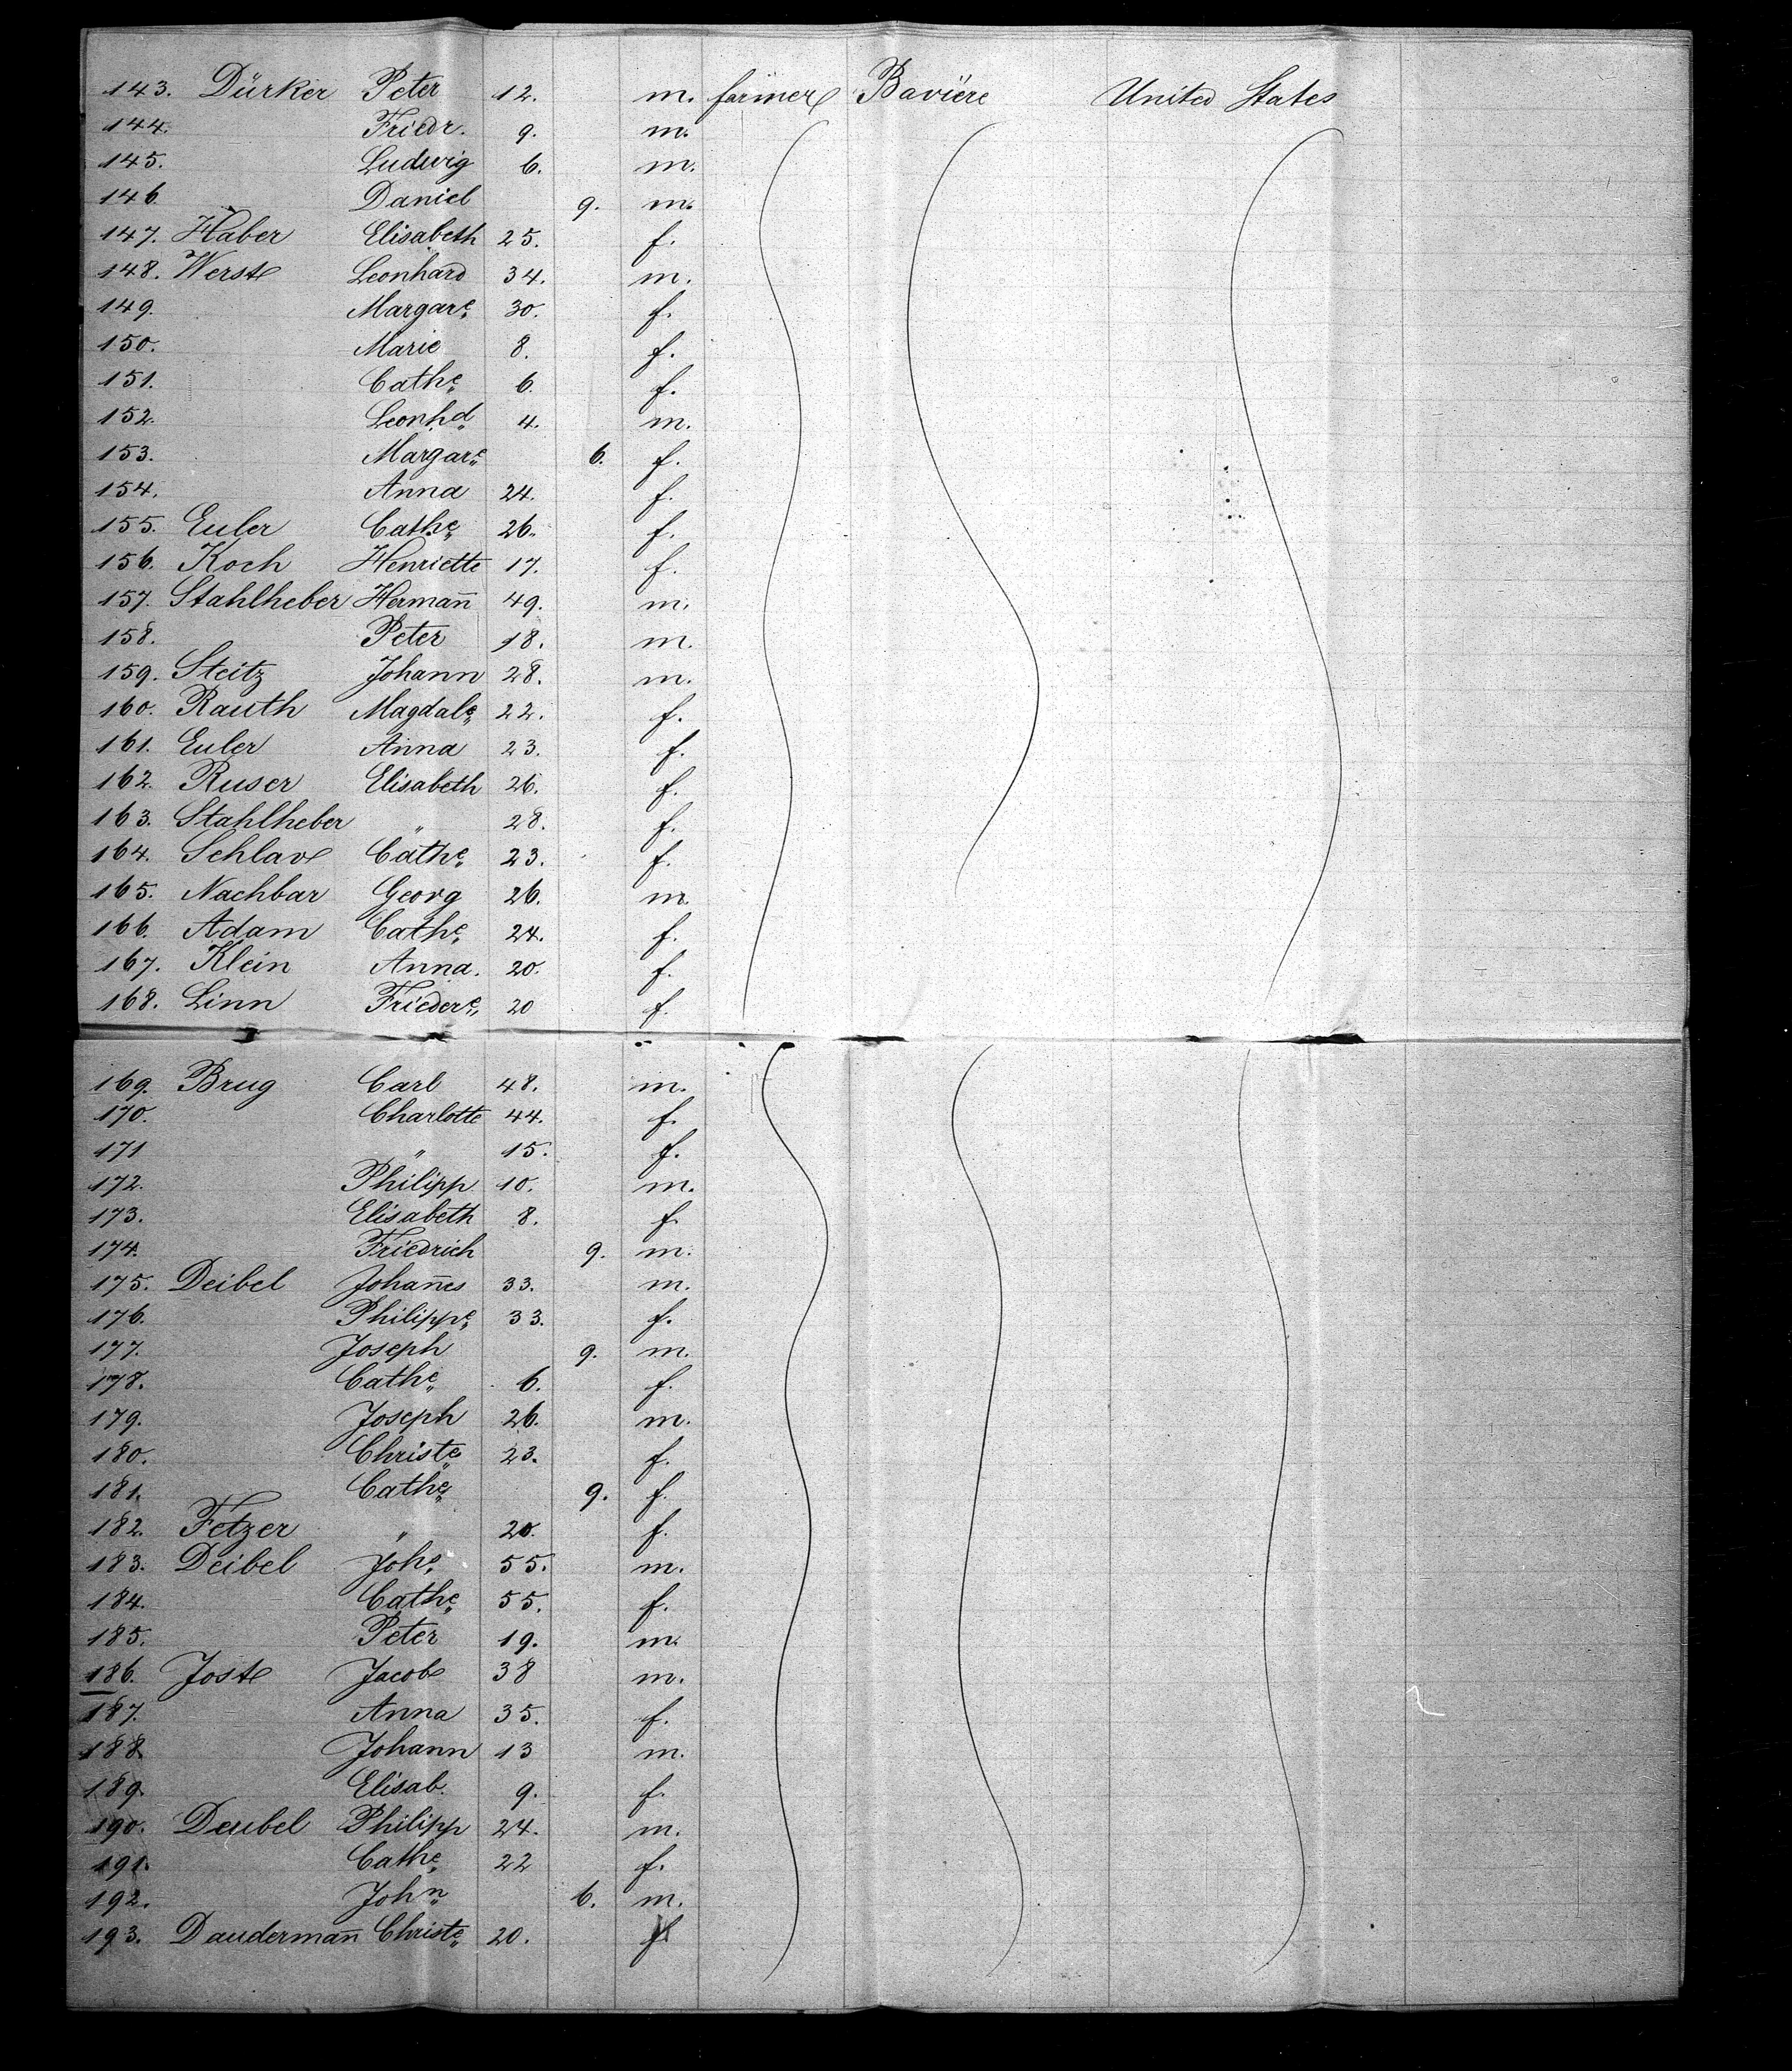 143. Dürker Peter 12. m. farmer Bavière United States
144. Friedr. 9. m.
145. Ludwig 6. m.
146 Daniel 9. m.
147. Haber Elisabeth 25. f.
148. Werst Leonhard 34. m.
149. Margare. 30. f.
150. Marie 8. f.
151. Cathe. 6. f.
152. Leonhd. 4. m.
153. Margare. 6. f.
154. Anna 24. f.
155. Euler Cathe. 26. f.
156. Koch Henriette 17. f.
157. Stahlheber Hermañ 49. m.
158. Peter 18. m.
159. Steitz Johann 28. m.
160. Rauth Magdale. 22. f.
161. Euler Anna 23. f.
162. Ruser Elisabeth 26. f.
163. Stahlheber " 28. f.
164. Schlav Cathe. 23. f.
165. Nachbar Georg 26. m.
166. Adam Cathe. 24. f.
167. Klein Anna. 20. f.
168. Linn Friedere. 20 f.
169. Brug Carl 48. m.
170. Charlotte 44. f.
171 " 15. f.
172. Philipp 10. m.
173. Elisabeth 8. f.
174. Friedrich 9. m.
175. Deibel Johañes 33. m.
176. Philippe. 33. f.
177. Joseph 9. m.
178. Cathe. 6. f.
179. Joseph 26. m.
180. Christe. 23. f.
181. Cathe. 9. f.
182. Fetzer " 20. f.
183. Deibel Johs. 55. m.
184. Cathe. 55. f.
185. Peter 19. m.
186. Jost Jacob 38 m.
187. Anna 35. f.
188. Johann 13 m.
189. Elisab. 9. f.
190. Deubel Philipp 24. m.
191. Cathe. 22 f.
192. John. 6. m.
193. Daudermañ Christe. 20. f